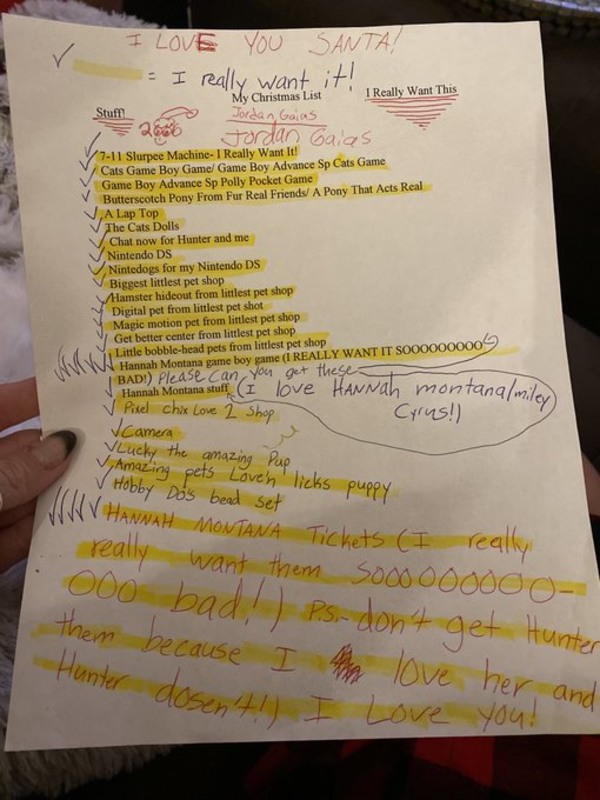 I LOVE YOU SANTA!
= I really want it!
My Christmas List
I Really Want This
Stuff!
Jordan Gaias
2006
Jordan Gaias
7-11 Slurpee Machine- I Really Want It!
Cats Game Boy Game/ Game Boy Advance Sp Cats Game
Game Boy Advance Sp Polly Pocket Game
Butterscotch Pony From Fur Real Friends/ A Pony That Acts Real
A Lap Top
The Cats Dolls
Chat now for Hunter and me
Nintendo DS
Nintedogs for my Nintendo DS
Biggest littlest pet shop
Hamster hideout from littlest pet shop
Digital pet from littlest pet shot
Magic motion pet from littlest pet shop
Get better center from littlest pet shop
Little bobble-head pets from littlest pet shop
Hannah Montana game boy game (I REALLY WANT IT SOOOOOOOOO
BAD!) Please can you get these
Hannah Montana stuff (I love HANNAH montana/miley
Cyrus!)
Pixel Chix Love 2 Shop
Camera
Lucky the amazing Pup
Amazing pets Love'n licks puppy
Hobby Do's bead set
HANNAH MONTANA Tickets (I really
really want them SOOOOOOOOO-
OOO bad!) P.S.- don't get Hunter
them because I love her and
Hunter dosen't!) I Love you!